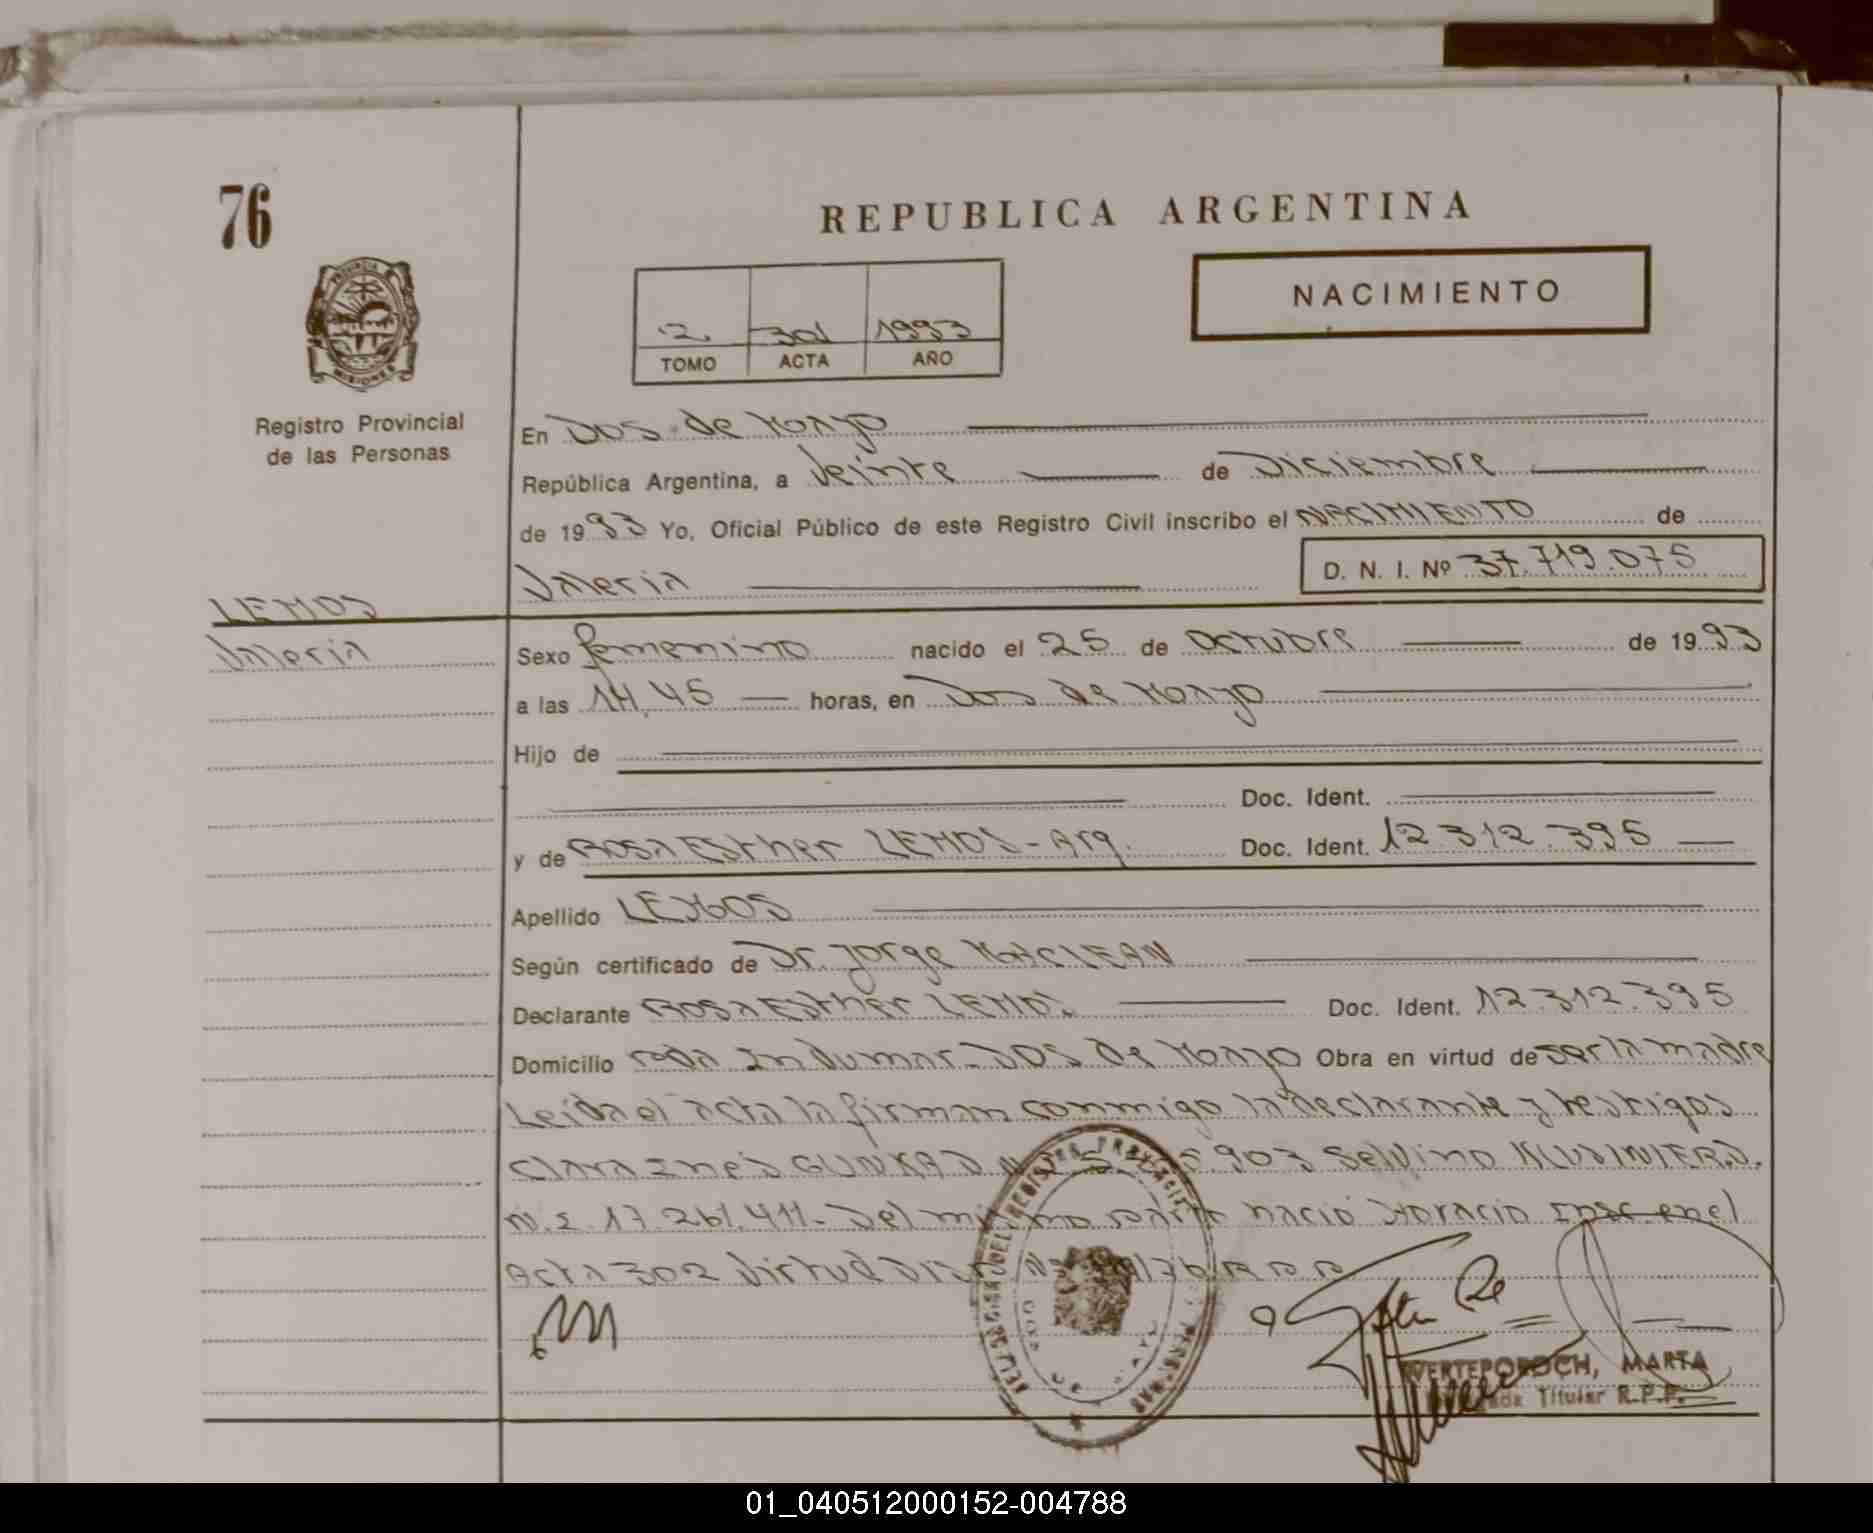 76
REPUBLICA ARGENTINA
NACIMIENTO
2 301 1993
TOMO ACTA AÑO
PROVINCIA DE
MISIONES
Registro Provincial
de las Personas
En Dos de Mayo
República Argentina, a Veinte de Diciembre
de 1993 Yo, Oficial Público de este Registro Civil inscribo el NACIMIENTO de
Valeria D. N. I. Nº 37.719.075
LEMOS
Valeria
Sexo femenino nacido el 25 de Octubre de 1993
a las 14,45 horas, en Dos de Mayo
Hijo de
Doc. Ident.
y de Rosa Esther LEMOS-Arg. Doc. Ident. 12.312.395
Apellido LEMOS
Según certificado de Dr. Jorge MACLEAN
Declarante Rosa Esther LEMOS Doc. Ident. 12.312.395
Domicilio Dos de Mayo Obra en virtud de ser la madre
Leída el acta la firman conmigo la declarante y testigos
Clara Inés 903 Selvino
17.261.411- Del mismo parto nació Horacio Insc. en el
Acta 302 Virtud
VERTEPOROCH, MARTA
Titular R.P.P.
01_040512000152-004788